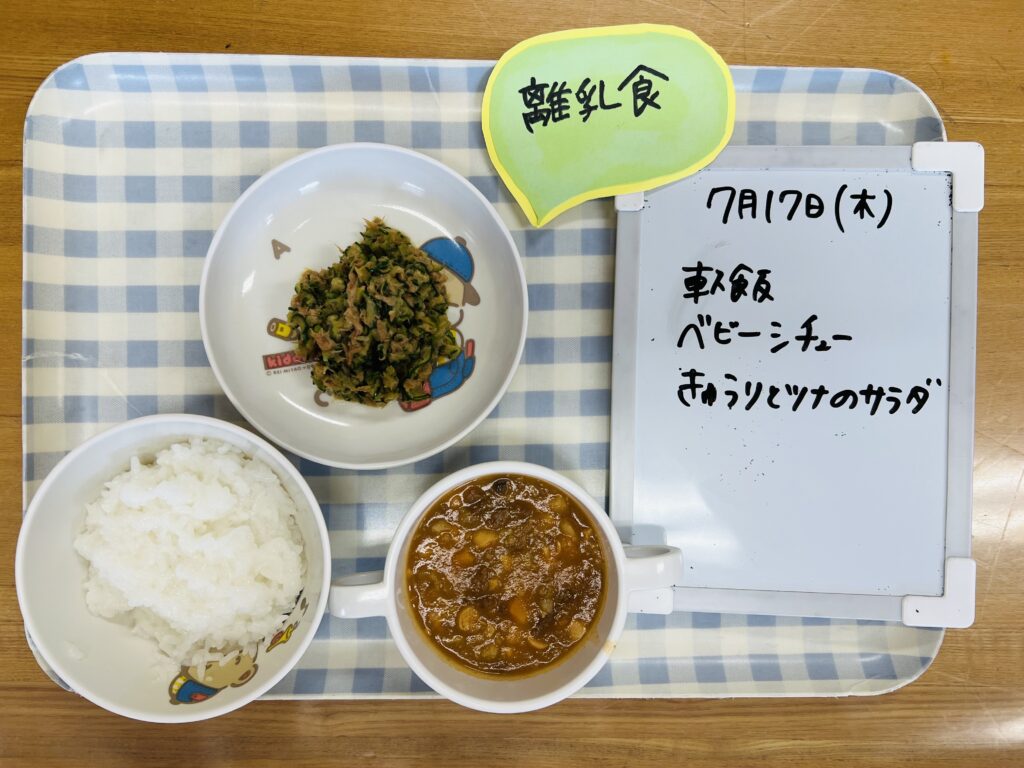 離乳食
7月17日(木)
軟飯
ベビーシチュー
きゅうりとツナのサラダ
A